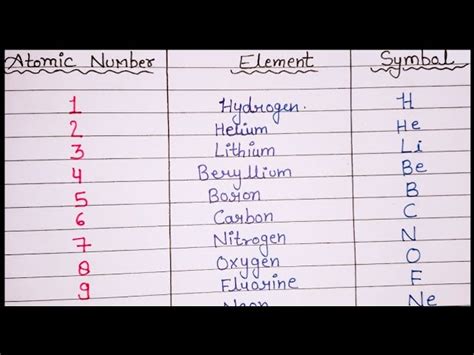 Atomic Number Element Symbol
1 Hydrogen. H
2 Helium He
3 Lithium Li
4 Beryllium Be
5 Boron B
6 Carbon C
7 Nitrogen N
8 Oxygen O
9 Fluorine F
Neon Ne